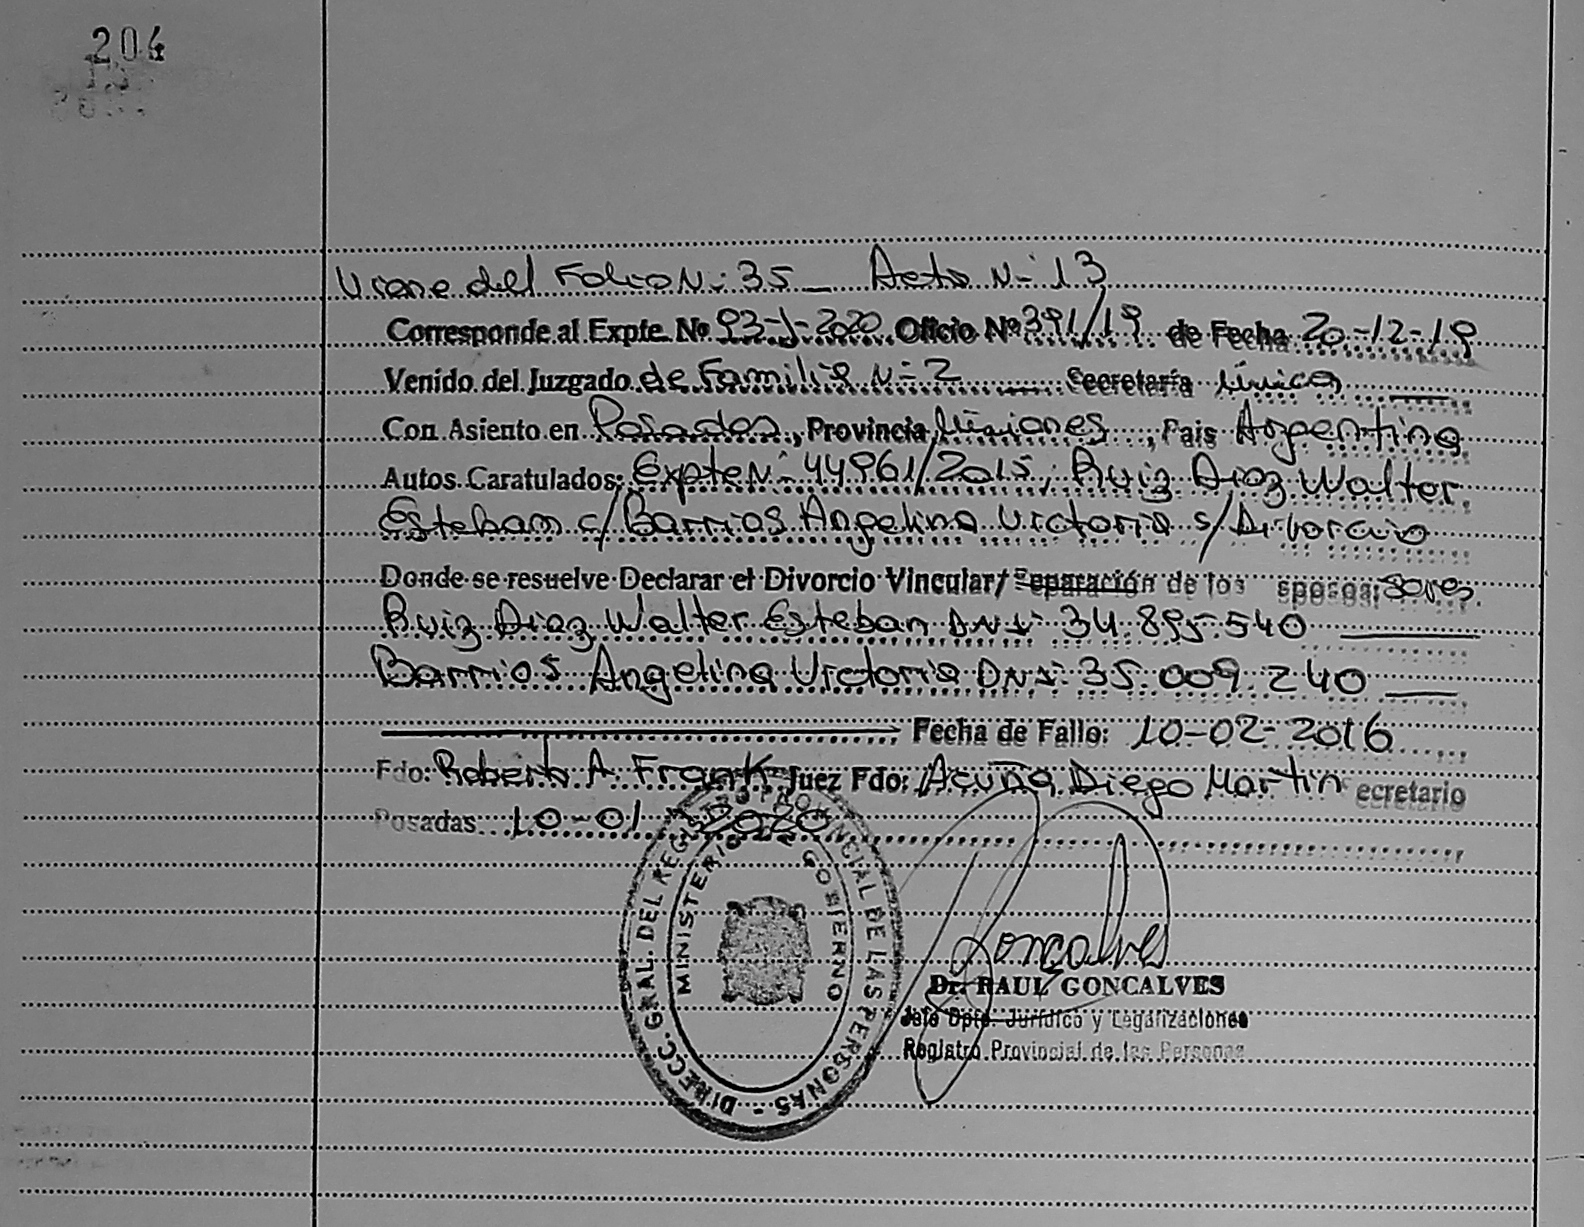 204
Viene del Folio N-: 35 _ Acta N-: 13
Corresponde al Expte. Nº 93-J-2020 Oficio Nº 391/19 de Fecha 20-12-19
Venido del Juzgado de Familia N-: 2 Secretaría única
Con Asiento en Posadas, Provincia Misiones, Pais Argentina
Autos Caratulados: Expte N-: 44961/2015, Ruiz Diaz Walter
Esteban c/ Barrios Angelina Victoria s/ Divorcio
Donde se resuelve Declarar el Divorcio Vincular/ Separación de los
Ruiz Diaz Walter Esteban DNI: 34.895.540
Barrios Angelina Victoria DNI: 35.009.240
Fecha de Fallo: 10-02-2016
Fdo: Roberto A. Frank Juez Fdo: Acuña Diego Martin ecretario
Posadas 10-01 2020
DIRECC. GRAL. DEL REGISTRO PROVINCIAL DE LAS PERSONAS -
MINISTERIO DE GOBIERNO
Goncalves
Dr. RAUL GONCALVES
Jefe Dpto. Jurídico y Legalizaciones
Registro Provincial de las Personas